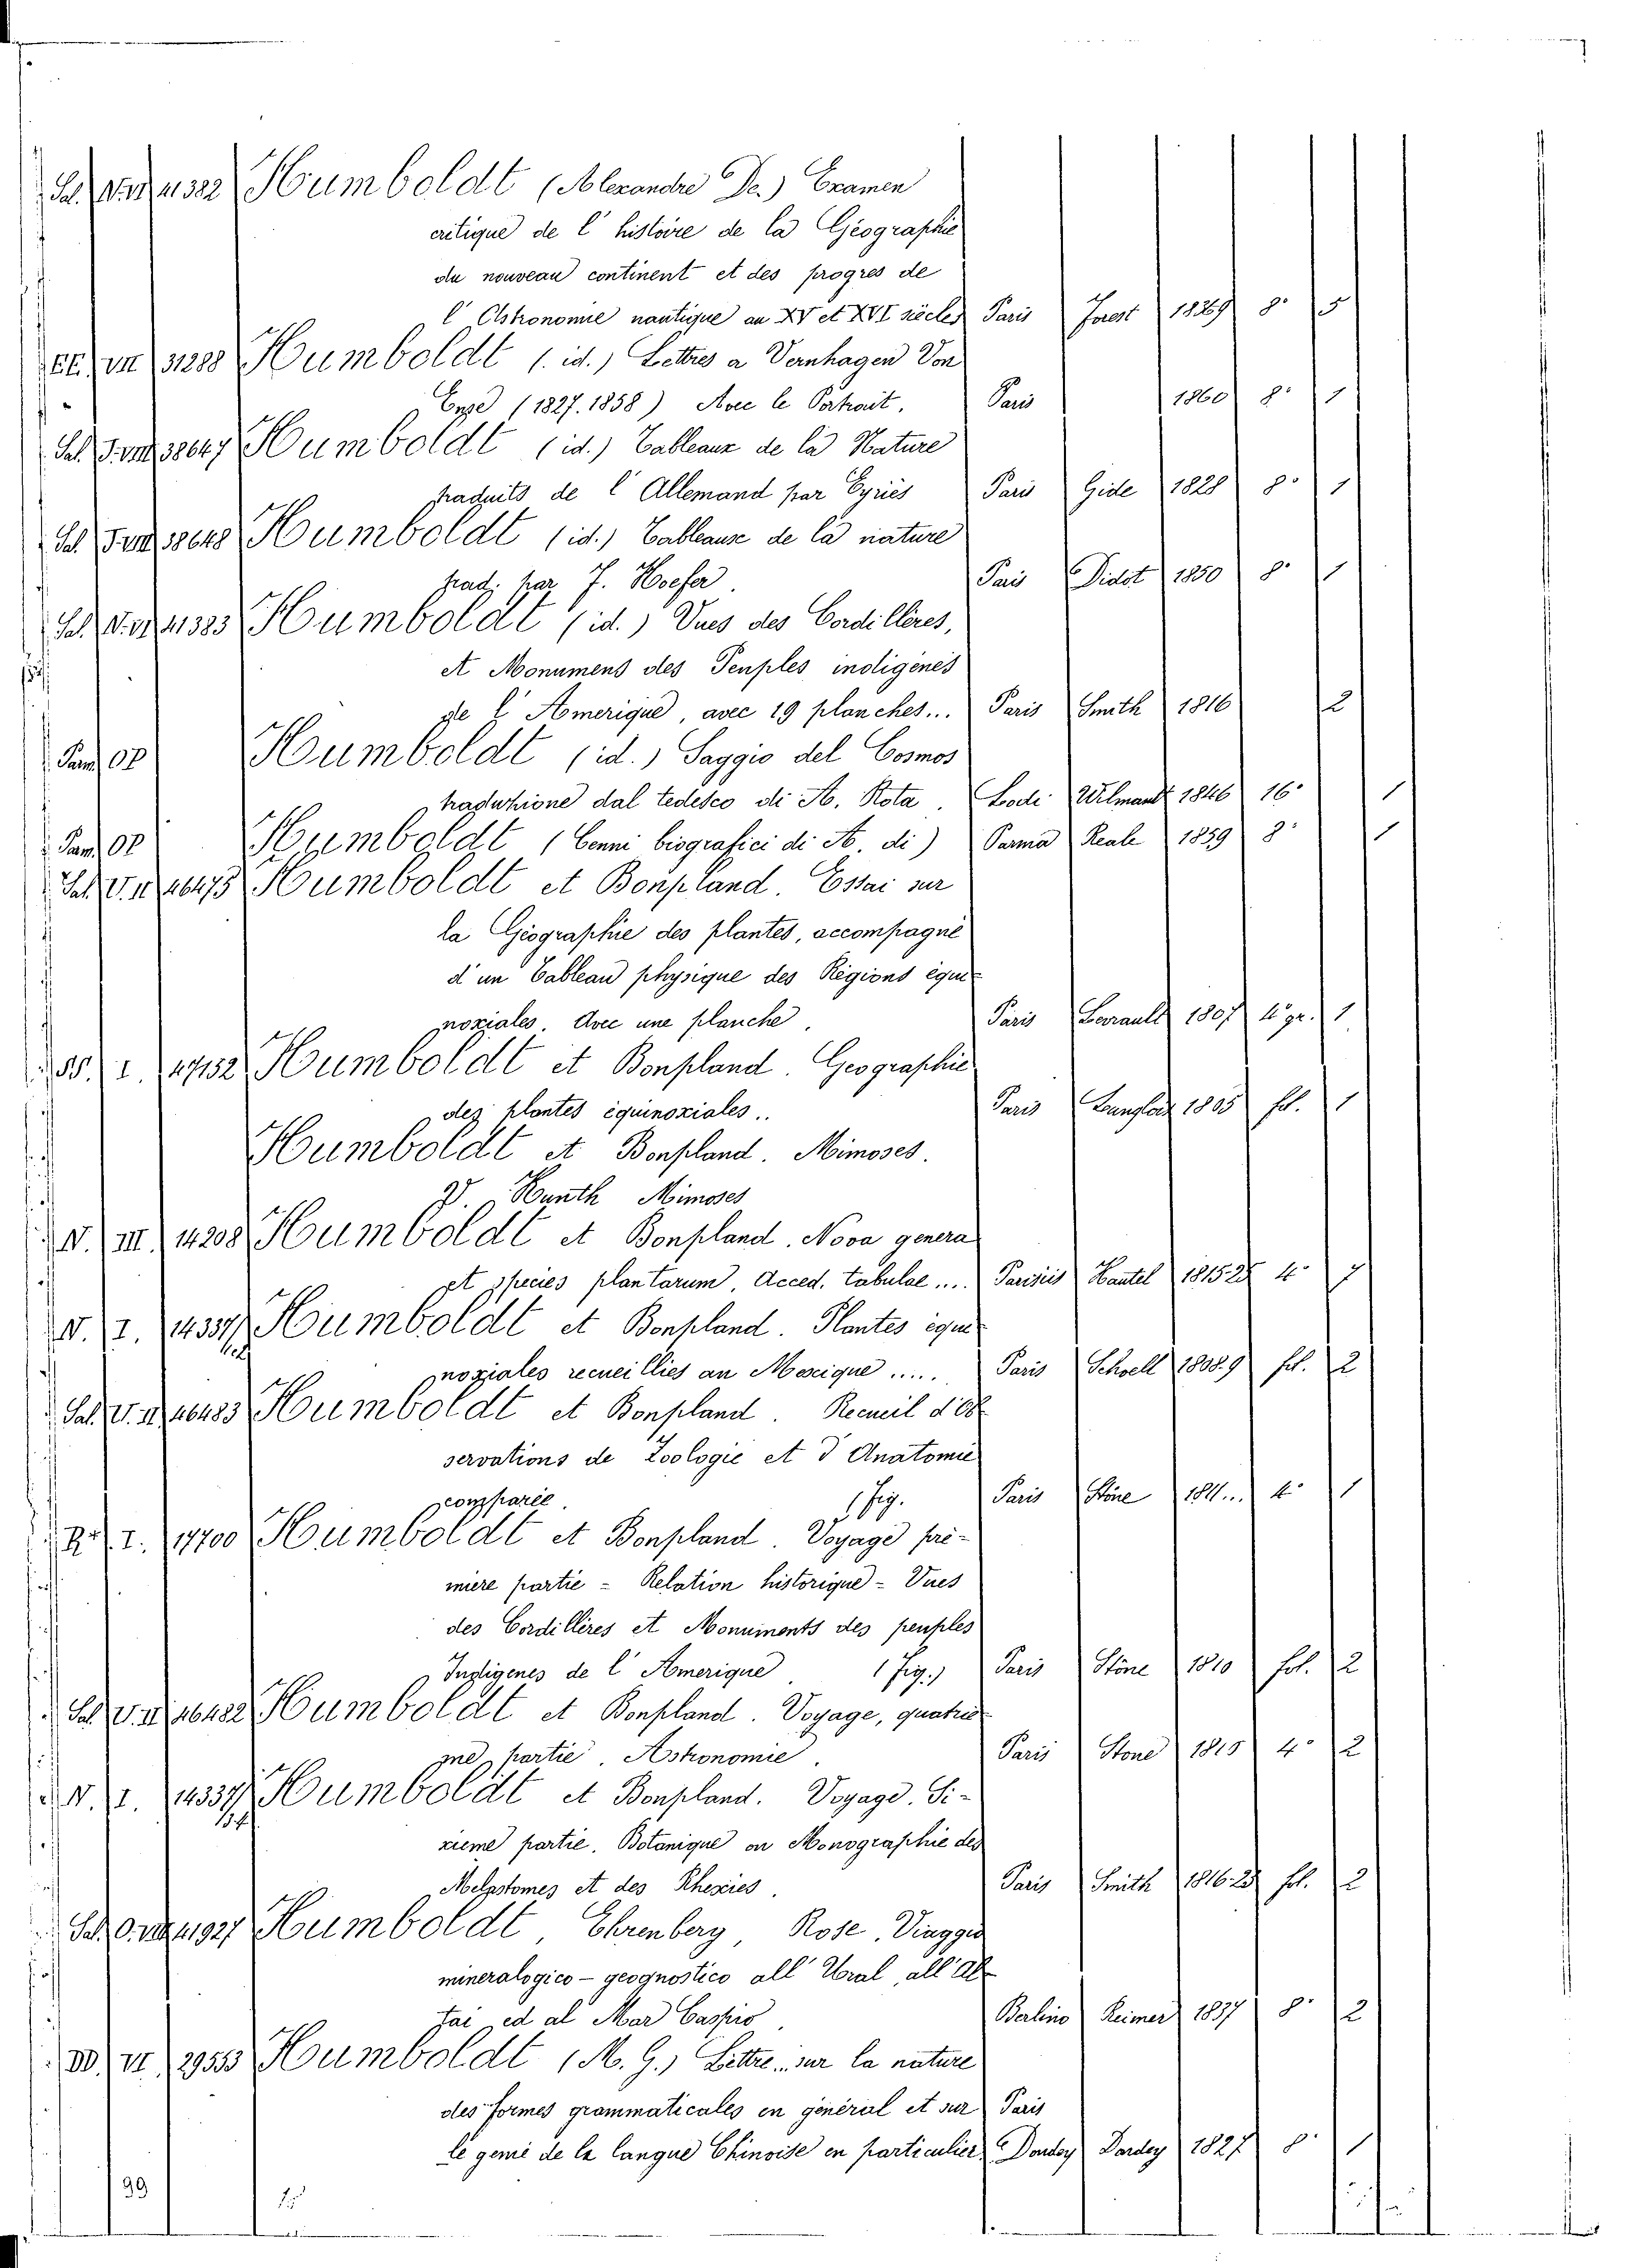 Humboldt (Alexandre De.) Examen
critique de l' histoire de la Géographie
du nouveau continent et des progres de
l' Astronomie nautique au XV et XVI siècles Paris 8° 5
VII 31288 Humboldt (id.) Lettres a Varnhagen Von
Ense (1827.1858) Avec le Portrait. Paris 1860 8° 1
Sal. 38647 Humboldt (id.) Tableaux de la Nature
traduits de l' Allemand par Eyriès Paris Gide 1828 8° 1
Sal. 38648 Humboldt (id.) Tableaux de la nature
trad. par F. Hoefer. Paris Didot 1850 8° 1
Sal. 41383 Humboldt (id.) Vues des Cordillères,
et Monumens des Peuples indigénes
de l' Amerique, avec 19 planches... Paris Smith 1816 2
Pam. OP Humboldt (id.) Saggio del Cosmos
traduzione dal tedesco di A. Rota. Lodi Wilmant 1846 16° 1
Pam. OP Humboldt (Cenni biografici di A. di) Parma Reale 1859 8° 1
Sal. V. II 46475 Humboldt et Bonpland. Essai sur
la Géographie des plantes, accompagné
d' un Tableau physique des Régions équi-
noxiales. Avec une planche. Paris 1807 4° gr. 1
I. 17132 Humboldt et Bonpland. Geographie
des plantes équinoxiales.. Paris 1805 fol. 1
Humboldt et Bonpland. Mimoses.
V. Kunth Mimoses
N. III. 14208 Humboldt et Bonpland. Nova genera
et species plantarum, Acced. tabulae.... Parisiis Hautel 1815.25 4° 7
N. I. 14337 Humboldt et Bonpland. Plantes equi-
noxiales recueillies au Mexique ..... Paris Schoell 1808.9 fol. 2
Sal. V. II. 46483 Humboldt et Bonpland. Recueil d' Ob-
servations de Zoologie et d' Anatomie
comparée. (fig. Paris Stöne 1811... 4° 1
I. 17700 Humboldt et Bonpland. Voyage pre-
miere partie - Relation historique - Vues
des Cordillères et Monuments des peuples
Indigenes de l' Amerique. (Fig.) Paris Stöne 1810 fol. 2
Sal. V. II. 46482 Humboldt et Bonpland. Voyage, quatriè-
me partie. Astronomie. Paris Stone 1815 4° 2
N. I. 14337 Humboldt et Bonpland. Voyage. Si-
xieme partie. Botanique ou Monographie des
Melastomes et des Rhexies. Paris Smith 1816.23 fol. 2
Humboldt, Ehrenberg, Rose. Viaggio
mineralogico - geognostico all' Ural, all' Al-
tai, ed al Mar Caspio. Berlino Reimer 1837 8° 2
VI. 2955 Humboldt (M. G.) Lettre.. sur la nature
des formes grammaticales en général et sur Paris
le genie de la langue Chinoise en particulier. Dondey Dardey 1827 8° 1
99